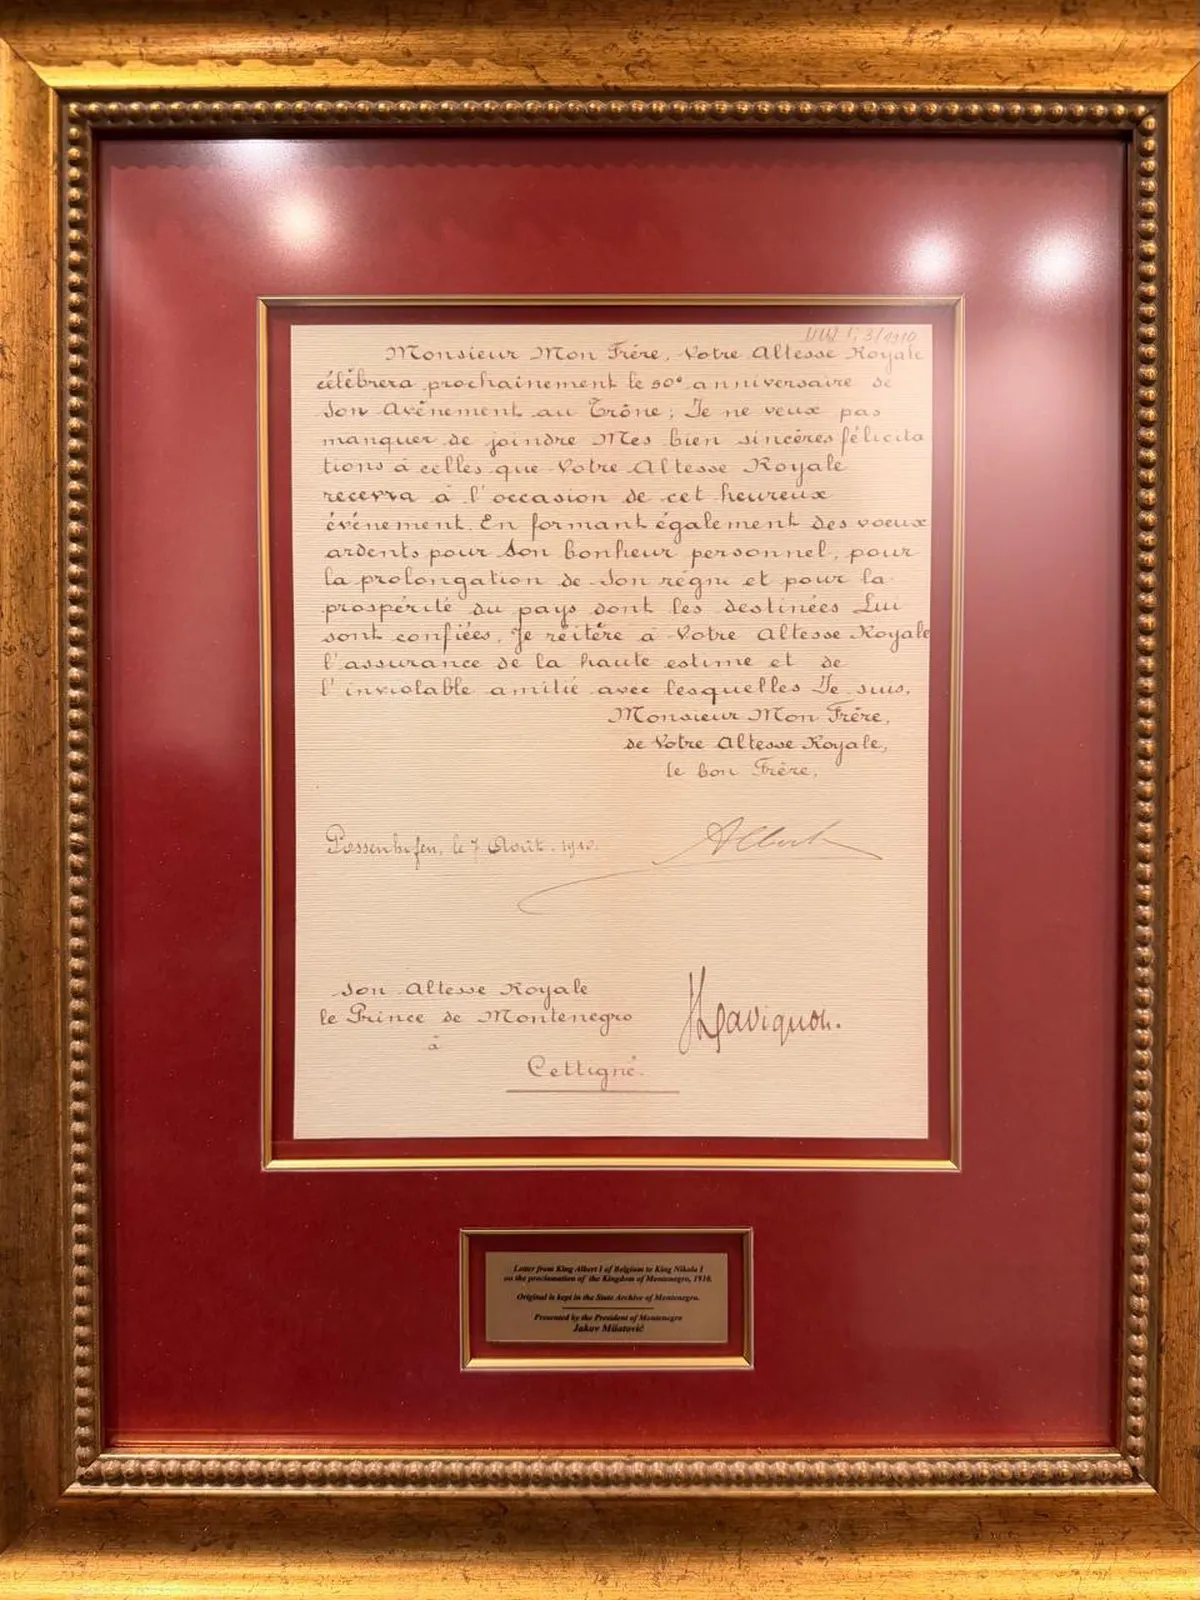 3/1910
Monsieur Mon Frère, Votre Altesse Royale
célèbrera prochainement le 50e anniversaire de
Son Avènement au Trône; Je ne veux pas
manquer de joindre Mes bien sincères félicita
tions à celles que Votre Altesse Royale
recevra à l'occasion de cet heureux
événement. En formant également des voeux
ardents pour Son bonheur personnel, pour
la prolongation de Son règne et pour la
prospérité du pays dont les destinées Lui
sont confiées, Je réitère à Votre Altesse Royale
l'assurance de la haute estime et de
l'inviolable amitié avec lesquelles Je suis,
Monsieur Mon Frère,
de Votre Altesse Royale,
le bon Frère,
Possenhofen, le 7 Août. 1910.
Albert
Son Altesse Royale
le Prince de Montenegro
à
Cettigné.
Davignon.
Letter from King Albert I of Belgium to King Nikola I
on the proclamation of the Kingdom of Montenegro, 1910.
Original is kept in the State Archive of Montenegro.
Presented by the President of Montenegro
Jakov Milatović